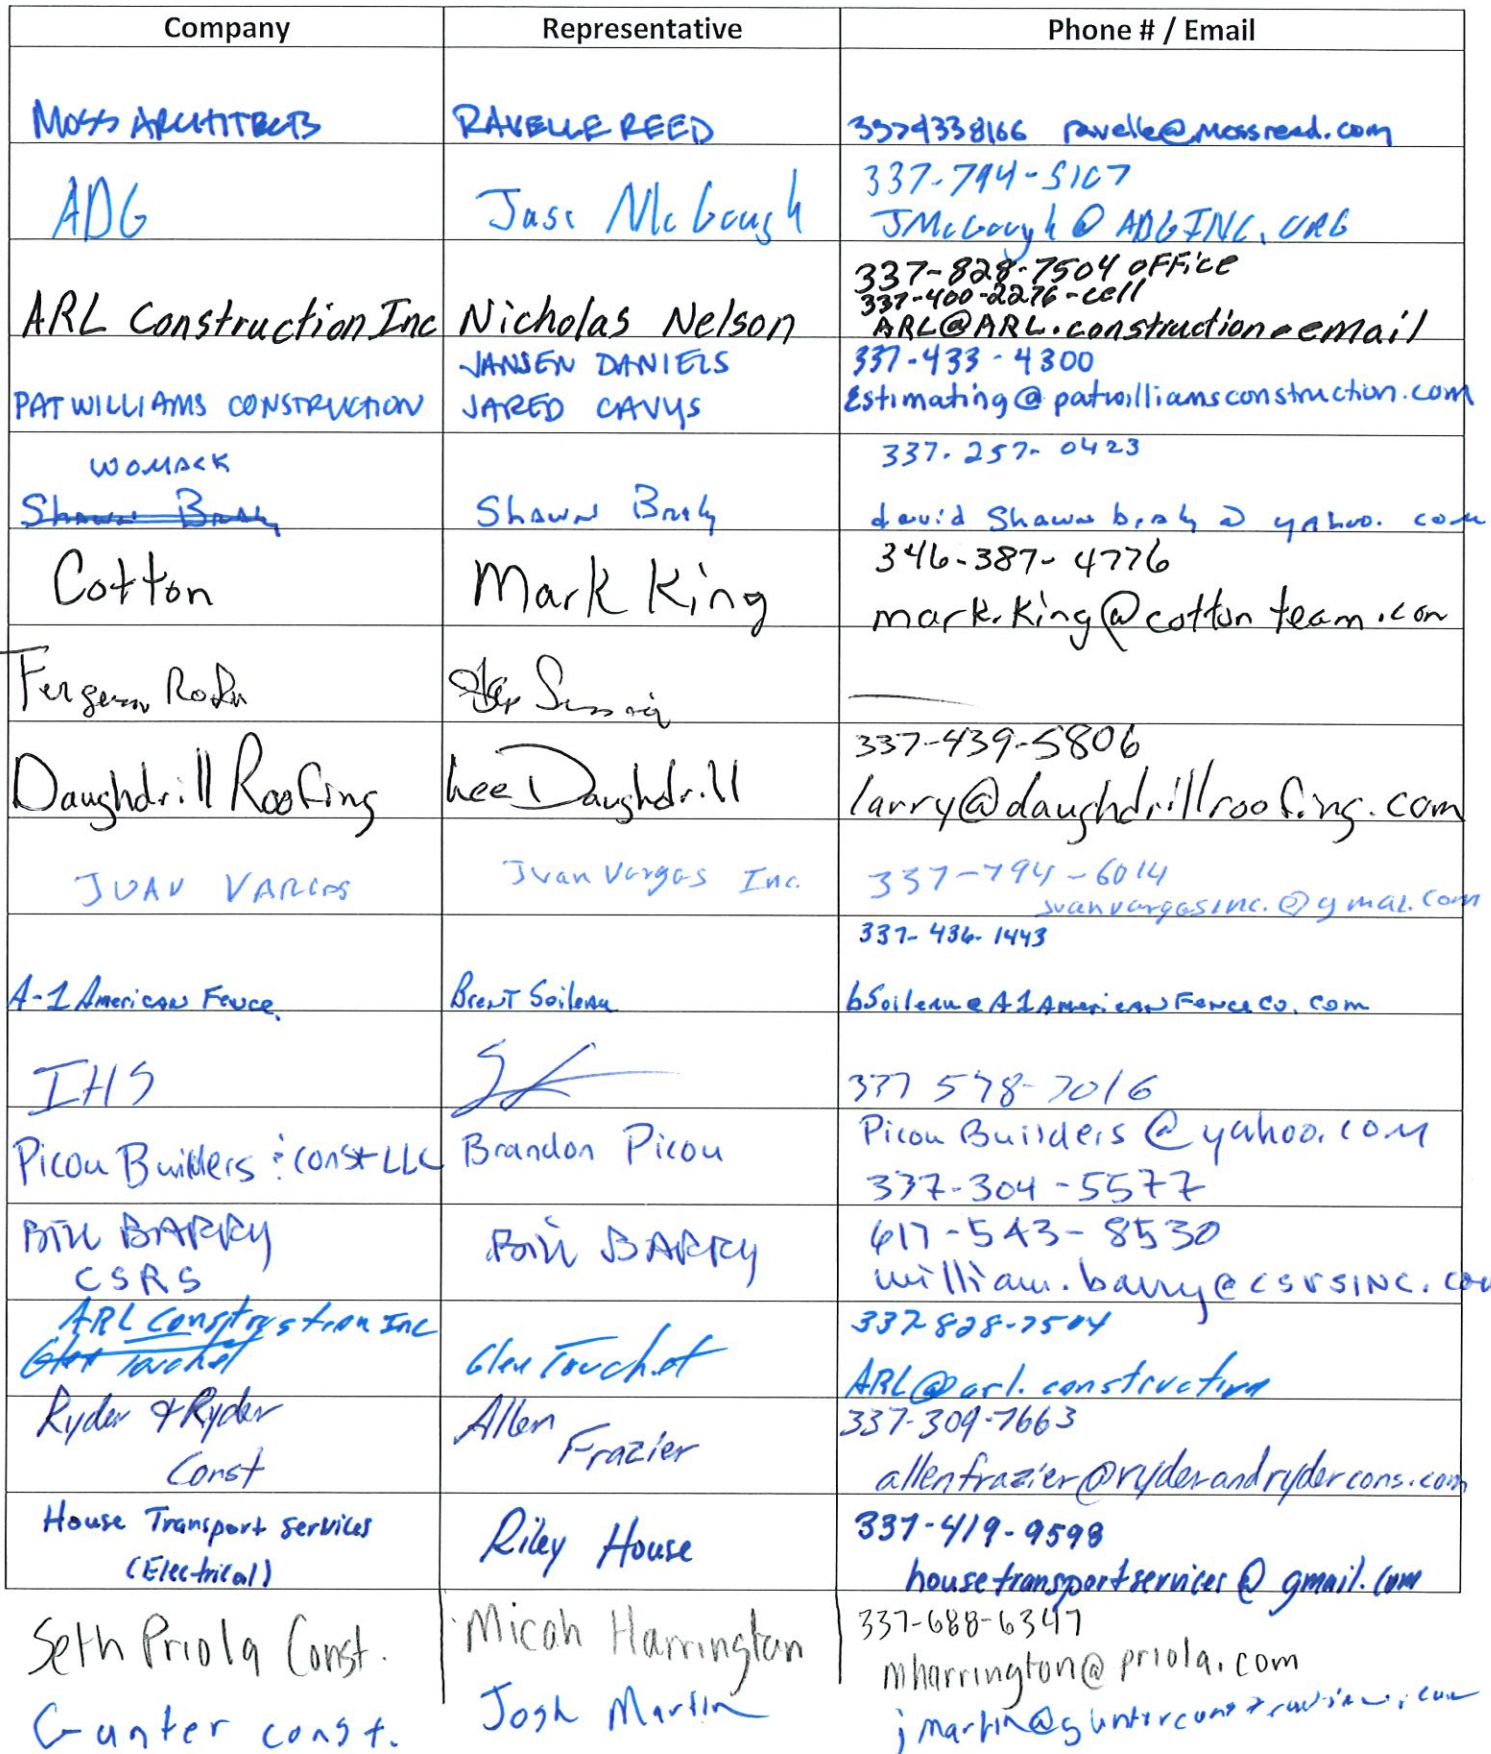 Company Representative Phone # / Email
MOSS ARCHITECTS RAVELLE REED 3374338166 ravelle@mossreed.com
ADG Jase McGough 337-794-5107
JMcGough@ADGINC.ORG
ARL Construction Inc Nicholas Nelson 337-828-7504 OFFice
337-400-2276-cell
ARL@ARL.construction-email
PAT WILLIAMS CONSTRUCTION JANSEN DANIELS 337-433-4300
JARED Estimating@patwilliamsconstruction.com
WOMACK 337-257-0423
Shawn Brady Shawn Brady david Shawn brady @ yahoo. com
Cotton Mark King 346-387-4776
mark.king@cotton team.com
Ferguson
Daughdrill Roofing Lee Daughdrill 337-439-5806
larry@daughdrillroofing.com
JUAN VARGAS Juan Vargas Inc. 337-794-6014
juanvargasinc.@gmal.com
337-436-1443
A-1 American Fence. Brent Soileau bSoileau@A1AmericanFenceCo.com
IHS 337 578-7016
Picou Builders & const LLC Brandon Picou Picou Builders@yahoo.com
337-304-5577
Bill BARRY Bill BARRY 617-543-8530
CSRS william.barry@csrsinc.com
ARL Construction Inc 337-828-7504
Glen Touchet Glen Touchet ARL@arl.construction
Ryder & Ryder Allen Frazier 337-309-7663
Const allenfrazier@ryderandrydercons.com
House Transport Services Riley House 337-419-9598
(Electrical) housetransportservices@gmail.com
Seth Priola Const. Micah Harrington 337-688-6347
mharrington@priola.com
Gunter const. Josh Martin jmartin@gunterconstruction.com